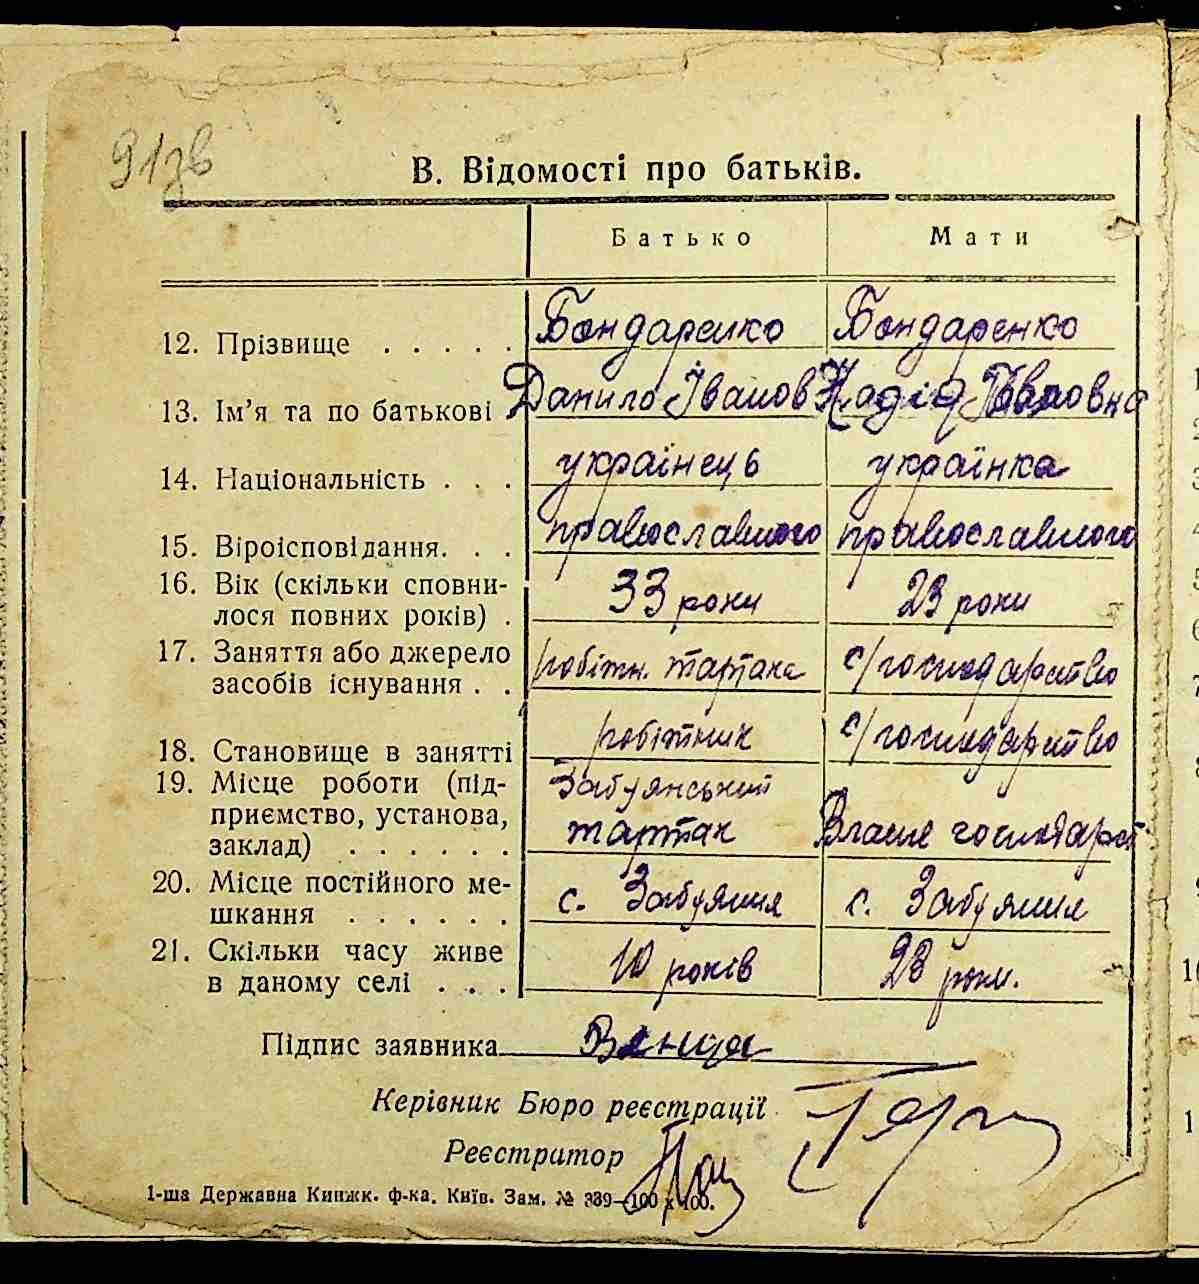 91зв
В. Відомості про батьків.
Батько Мати
12. Прізвище . . . . . Бондаренко Бондаренко
13. Ім'я та по батькові Данило Іванов Надія Івановна
14. Національність . . . українець українка
15. Віроісповідання. . . православного православного
16. Вік (скільки сповни-
лося повних років) . 33 роки 23 роки
17. Заняття або джерело
засобів існування . . робітн. тартака с/господарство
18. Становище в занятті робітник с/господарство
19. Місце роботи (під- Забуянський
приємство, установа, тартак Власне господарст.
заклад) . . . . . .
20. Місце постійного ме-
шкання . . . . . . с. Забуяння с. Забуяння
21. Скільки часу живе
в даному селі . . . 10 років 23 роки.
Підпис заявника
Керівник Бюро реєстрації
Реєстратор
1-ша Державна Книжк. ф-ка. Київ. Зам. № 339—100 x 100.